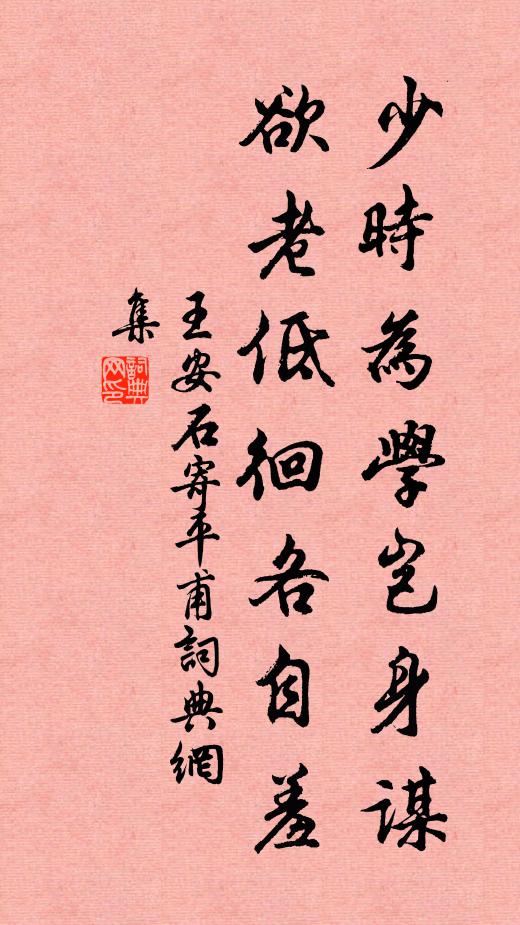 少時為學豈身謀
欲老低徊各自羞
王安石寄平甫詞典網
集
詞典網印